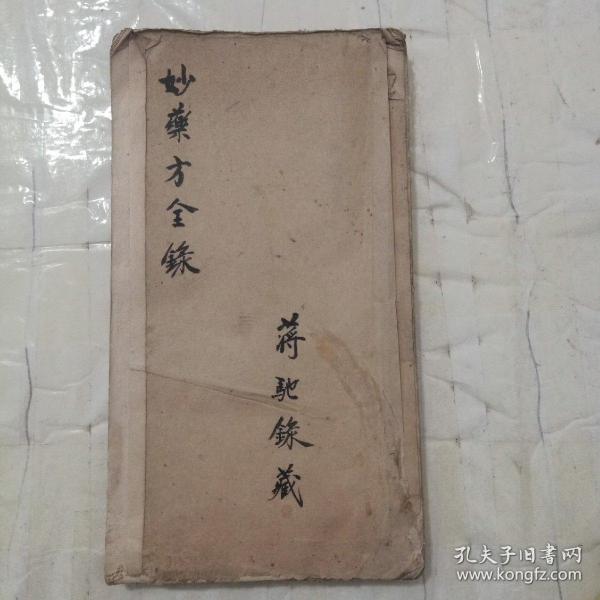 妙藥方全錄
蔣馳錄藏
孔夫子旧書网
www.kongfz.com